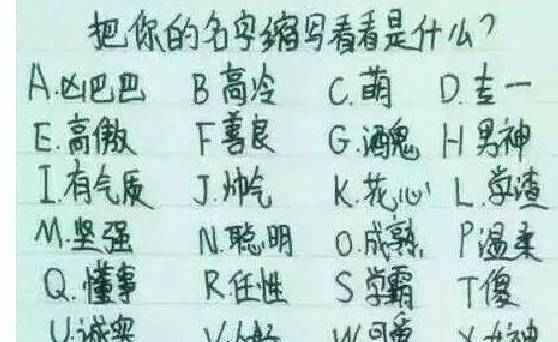 把你的名字缩写看看是什么?
A.凶巴巴 B高冷 C.萌 D.专一
E.高傲 F善良 G.酒鬼 H男神
I.有气质 J.帅气 K.花心 L.学渣
M.坚强 N.聪明 O.成熟 P温柔
Q.懂事 R任性 S学霸 T傻
U.诚实 V. W可爱 X女神